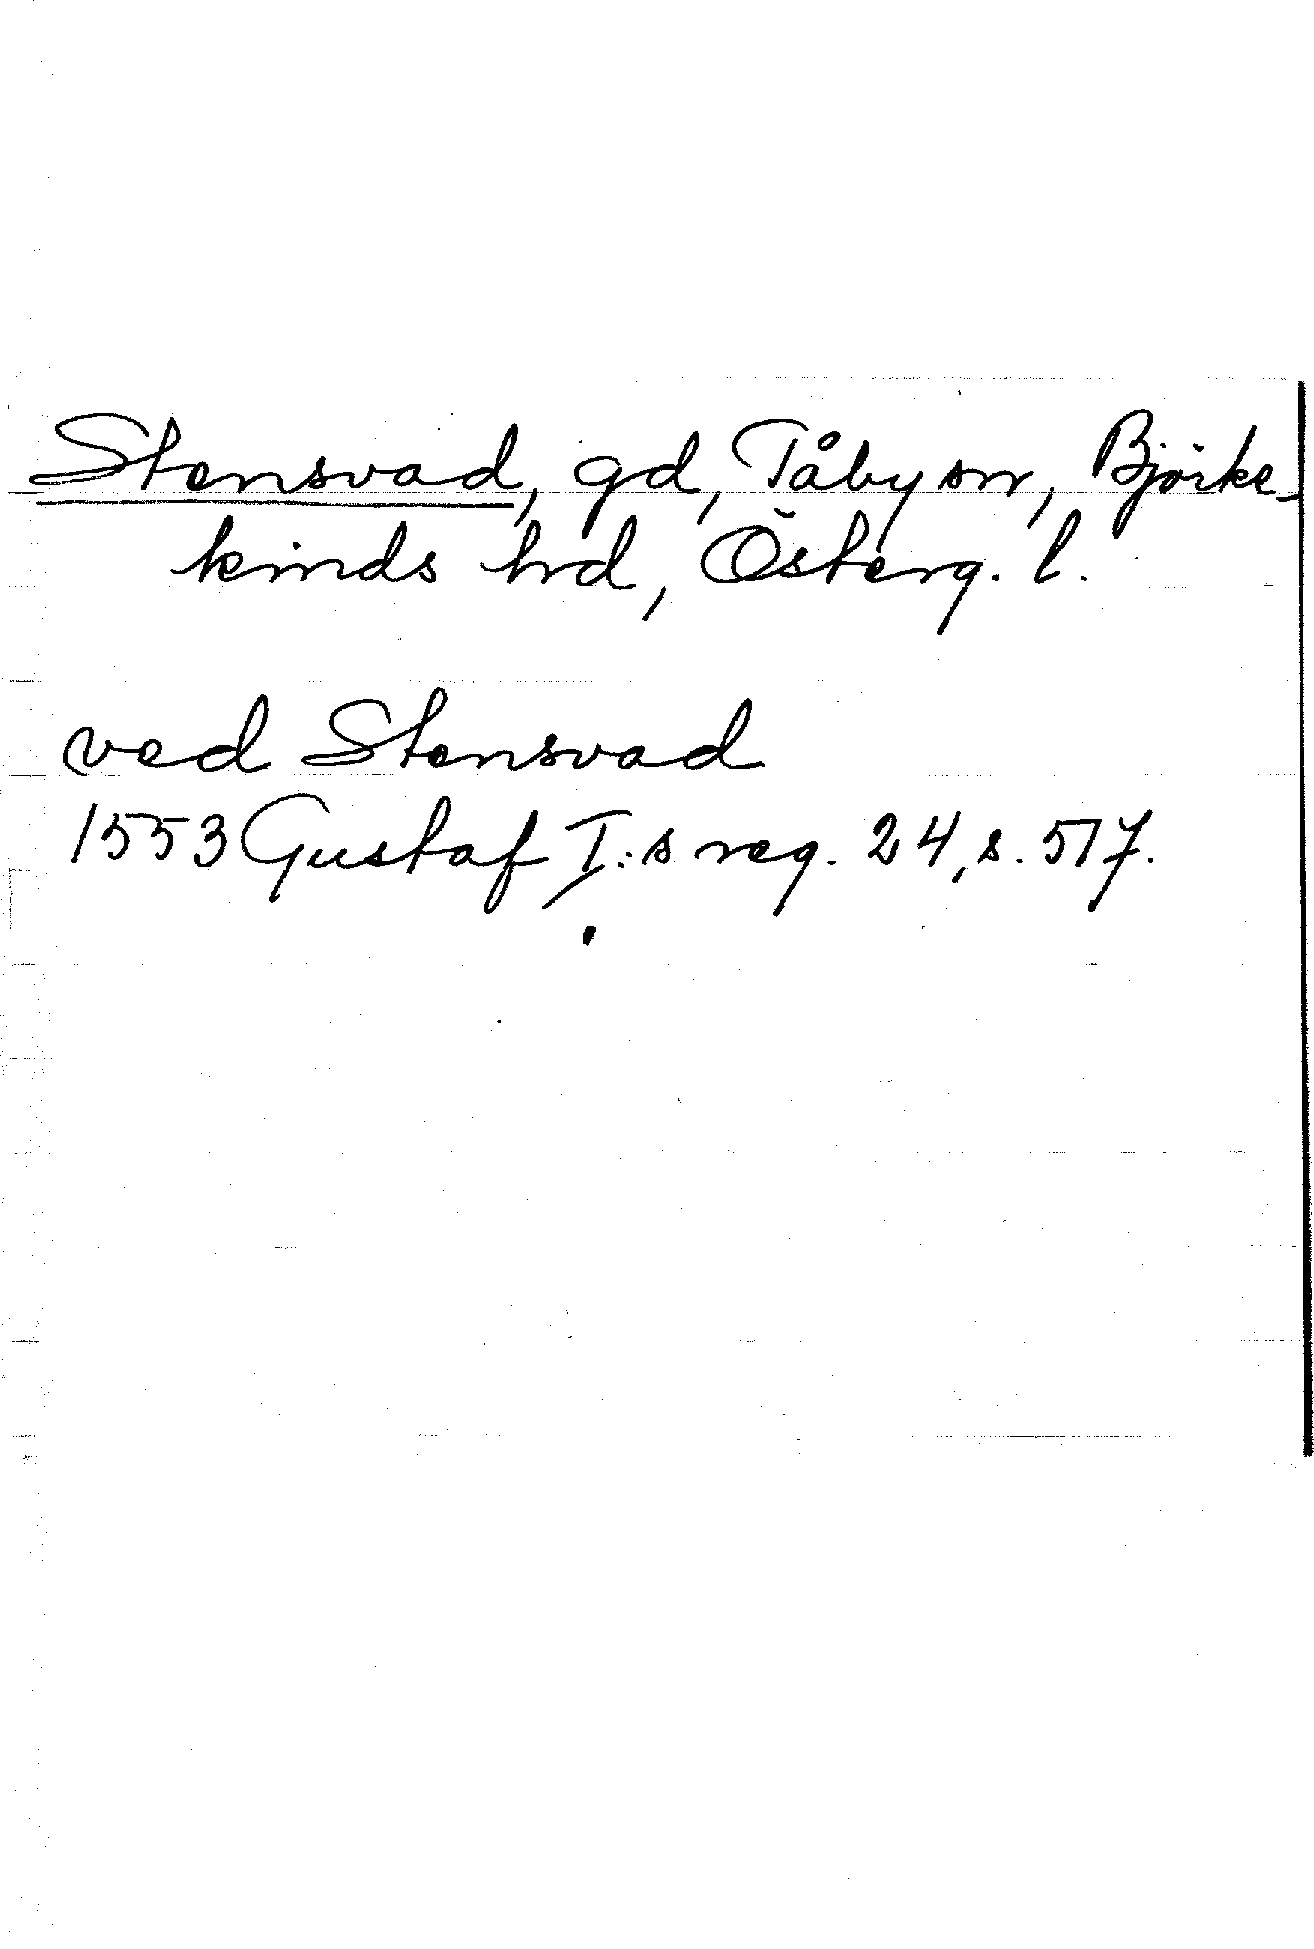 Stensvad, gd, Tåby sn, Björke-
kinds hrd, Österg. l.
ved Stensvad
1553 Gustaf I:s reg. 24, s. 517.